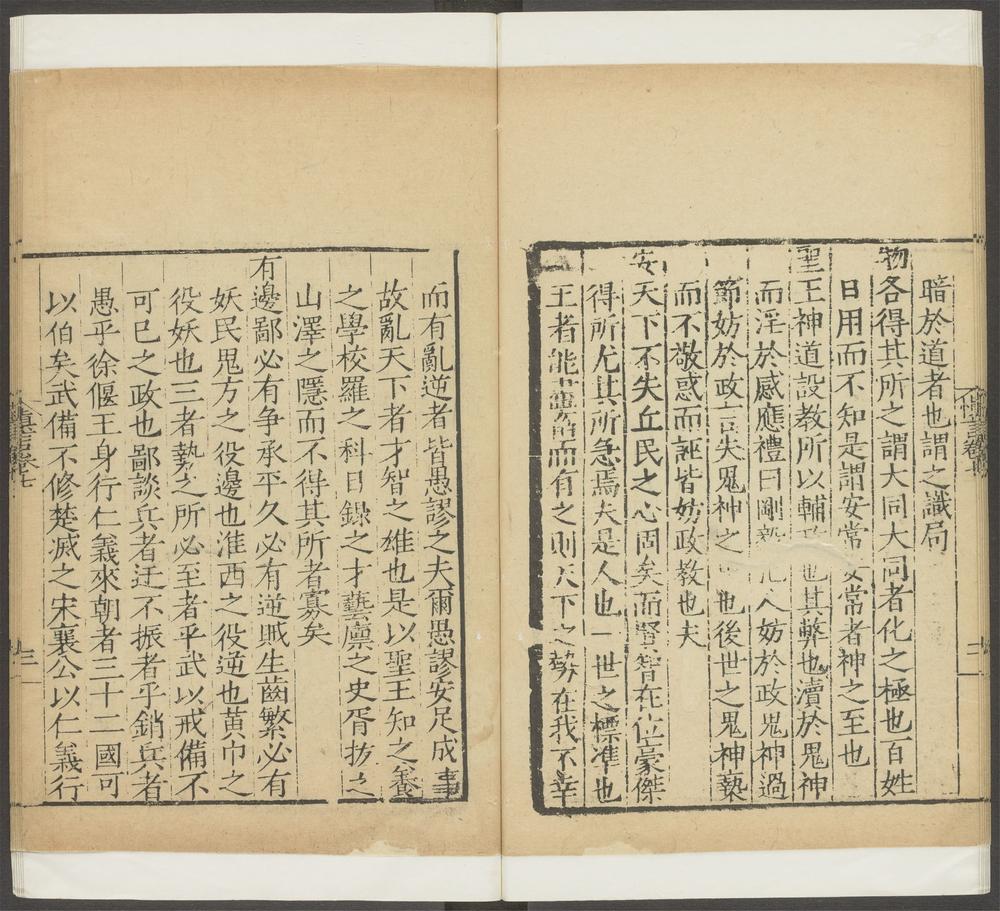 暗於道者也謂之識局
物各得其所之謂大同大同者化之極也百姓
日用而不知是謂安常安常者神之至也
聖王神道設教所以輔政也其弊也瀆於鬼神
而淫於感應禮曰剛人妨於政鬼神過
節妨於政言失鬼神之也後世之鬼神褻
而不敬惑而誣皆妨政教也夫
安天下不失丘民之心固矣而賢智在位豪傑
得所尤其所急焉夫是人也一世之標準也
王者能畫而有之則天下之勢在我不幸
而有亂逆者皆愚謬之夫爾愚謬安足成事
故亂天下者才智之雄也是以聖王知之養
之學校羅之科目錄之才藝廩之史胥拔之
山澤之隱而不得其所者寡矣
有邊鄙必有争承平久必有逆賊生齒繁必有
妖民鬼方之役邊也淮西之役逆也黄巾之
役妖也三者勢之所必至者乎武以戒備不
可已之政也鄙談兵者迂不振者乎銷兵者
愚乎徐偃王身行仁義來朝者三十二國可
以伯矣武備不修楚滅之宋襄公以仁義行
慎言卷七
三